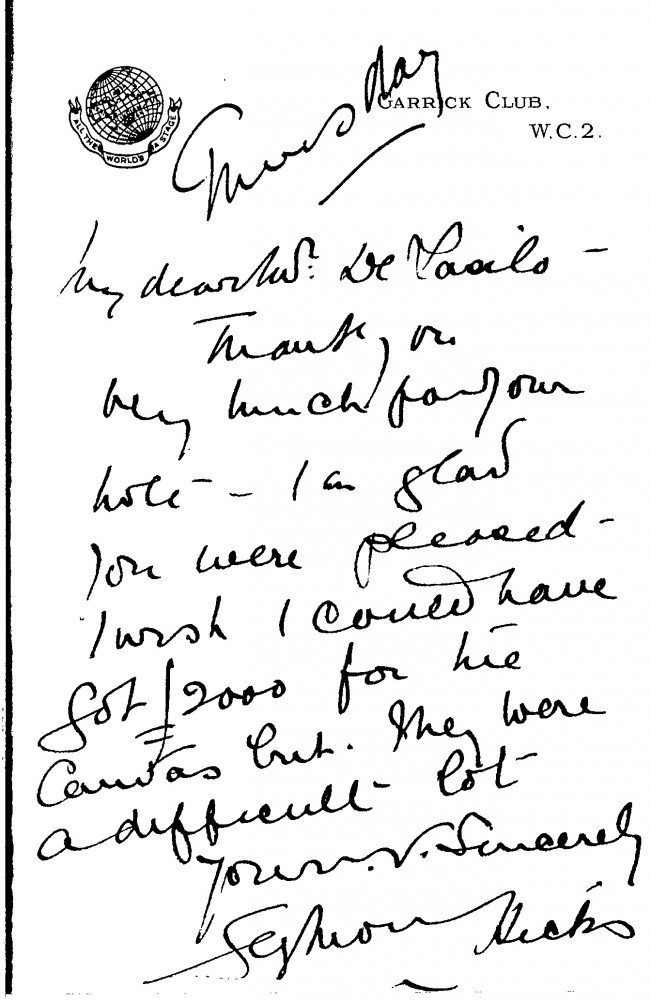 ALL THE WORLD'S A STAGE
GARRICK CLUB,
W.C.2.
Thursday
My dear Mr. De Laszlo –
Thank you
very much for your
note – I am glad
you were pleased –
I wish I could have
got £2000 for the
canvas but. they were
a difficult lot
Yours. v. Sincerely
Seymour Hicks